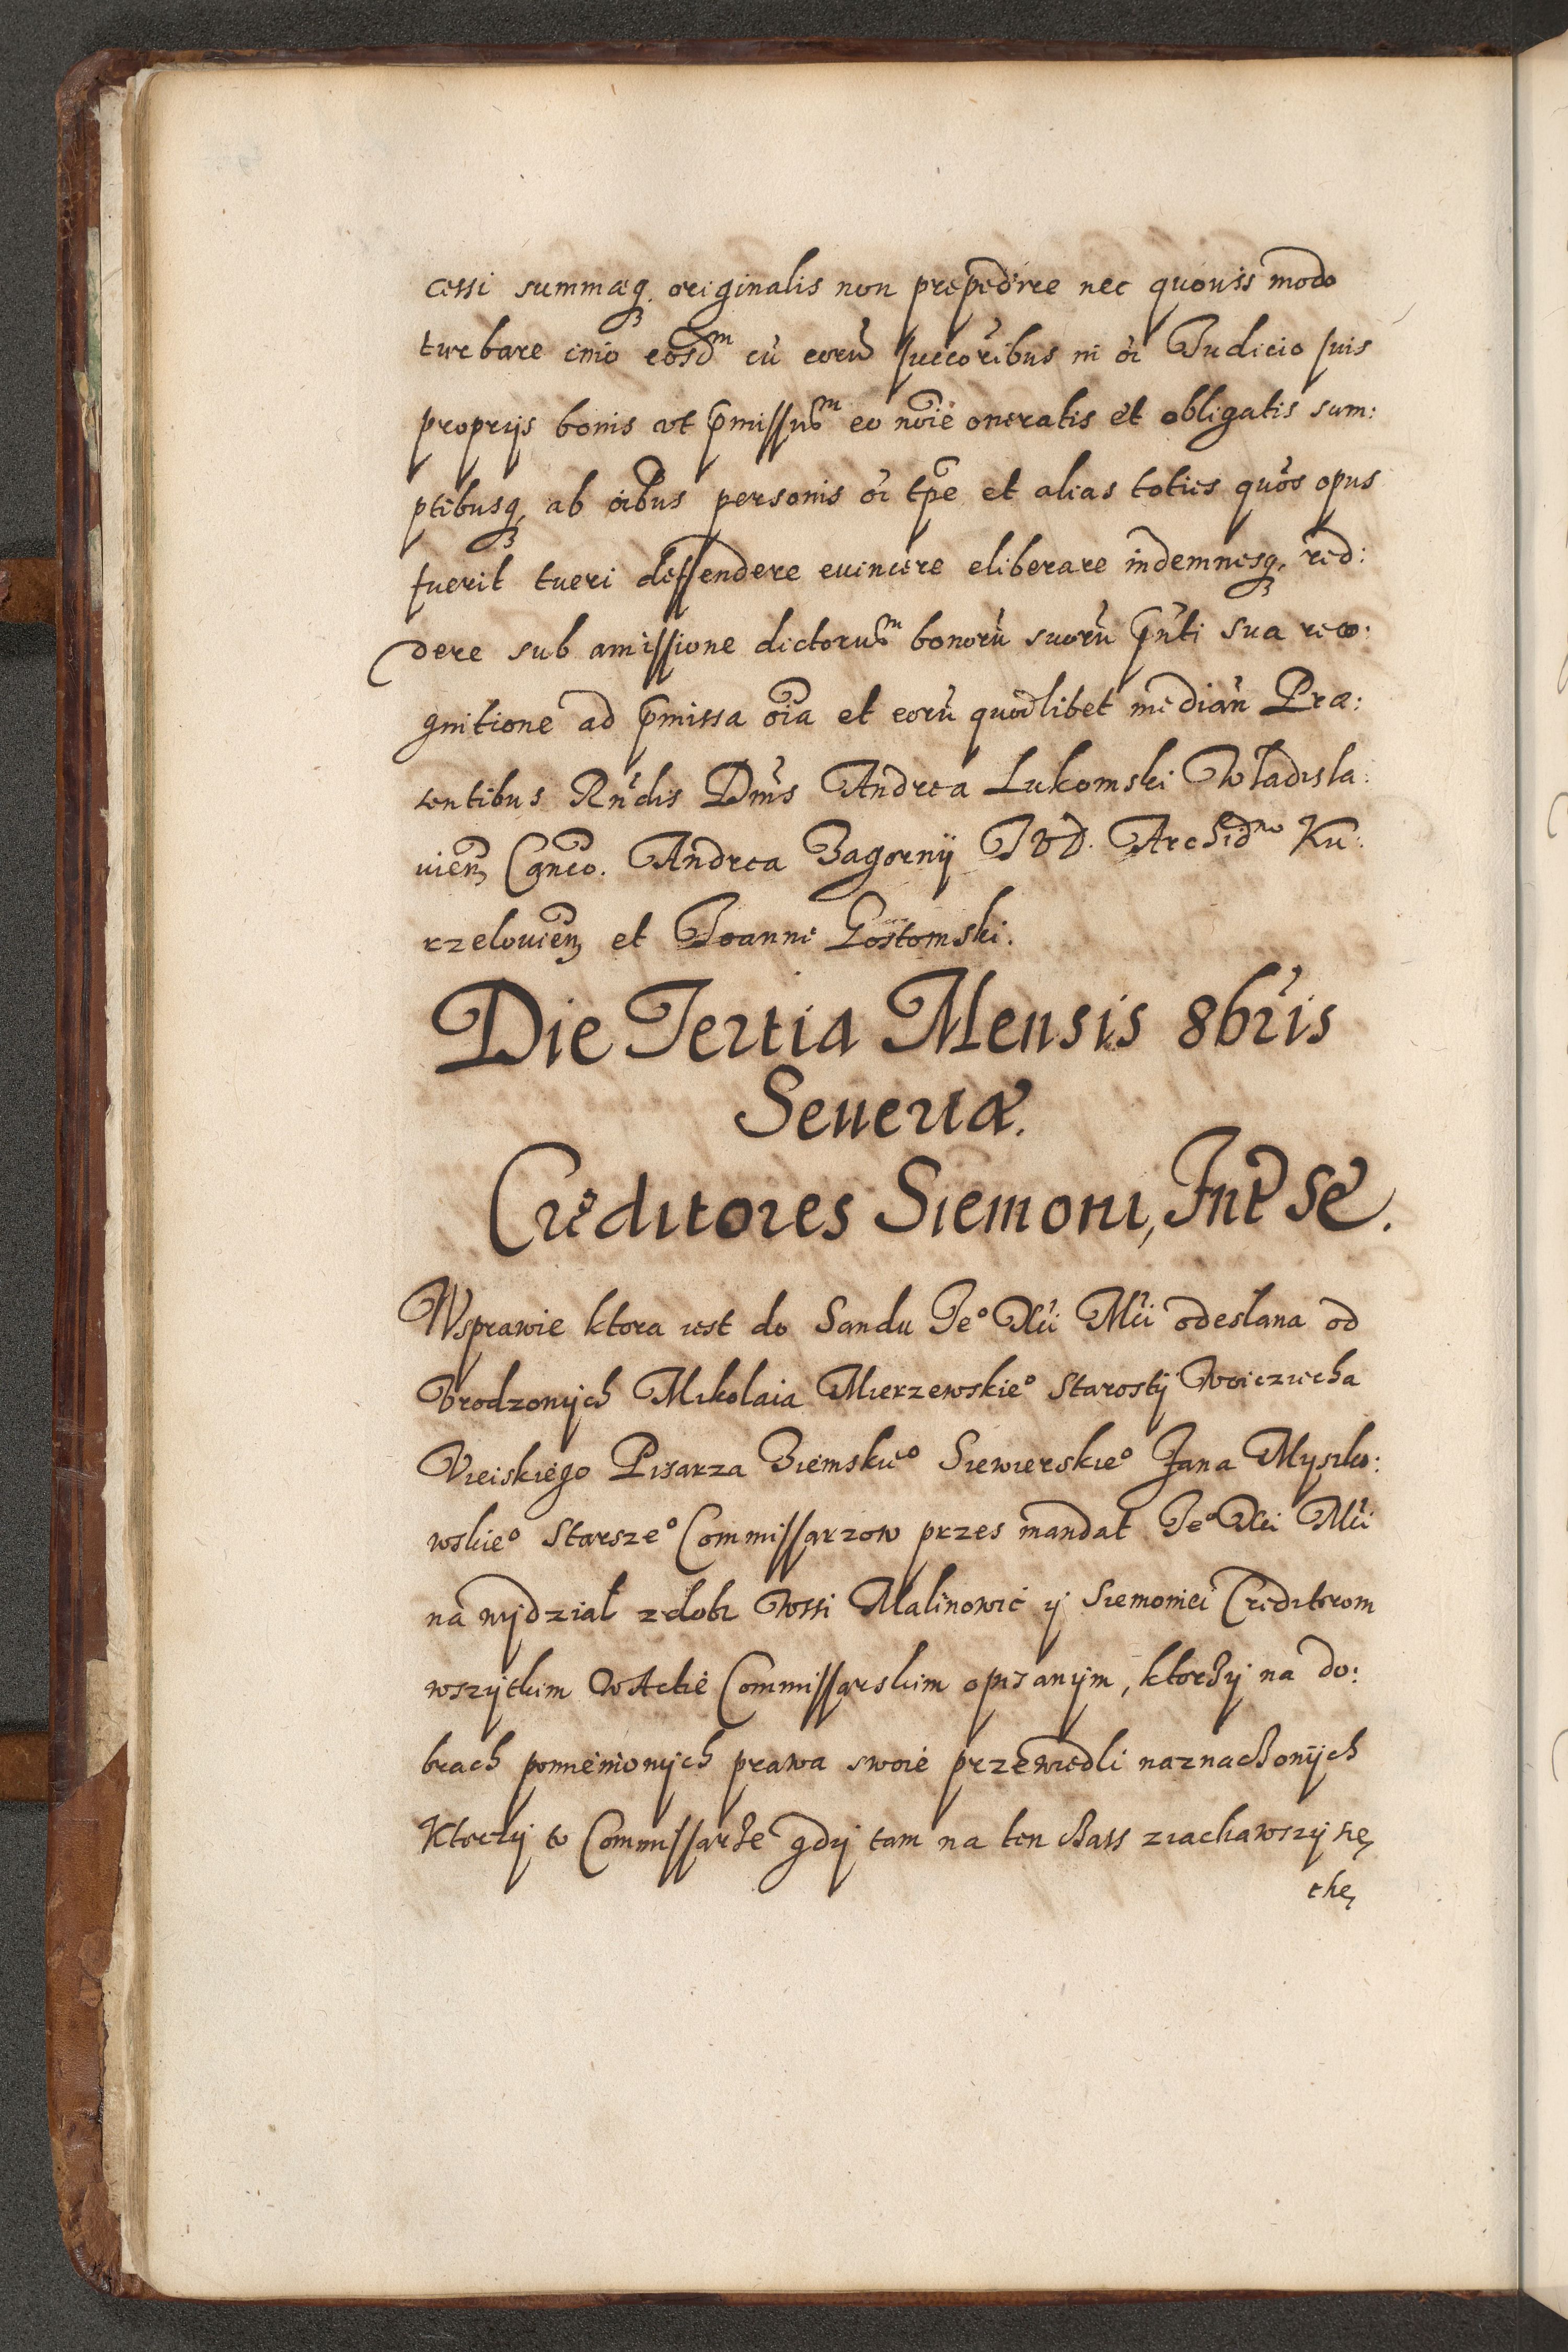 cessi summæq, originalis non prepedire nec quouis modo
turbare imo eosdm cũ eorũ succoribus in oi Judicio suis
proprijs bonis vt pmissum eo noie oneratis et obligatis sum:
ptibusq, ab oibus personis oi tpe et alias toties quos opus
fuerit tueri deffendere euincere eliberare indemnesq, red:
dere sub amissione dictorum bonorũ suorũ pnti sua reco:
gnitione ad pmissa oia et eorũ quodlibet median Præ:
sentibus Rndis Dnis Andrea Lukomski Wladisla:
uien Canco. Andrea Zagornij JVD. Archidno Ku:
rzelouien et Joanne Gostomski.
Die Tertia Mensis 8bris
Seueriæ.
Creditores Siemoni, Int Se.
Wsprawie ktora iest do Sandu Je° Xci Mci odeslana od
Vrodzonych Mikolaia Mierzewskie° Starosty Woiciecha
Vieiskiego Pisarza Ziemskie° Siewierskie° Jana Myszko:
wskie° Starsze° Commissarzow przes mandat Je° Xci Mci
na wydział zdobr Wssi Malinowic y Siemoniei Creditorom
wszytkim WActie Commissarskim opisanym, ktorzy na do:
brach pomienionych prawa swoie przewiedli naznaczonych
Ktorzy to Commissarze gdy tam na ten czass ziachawszy się
chę